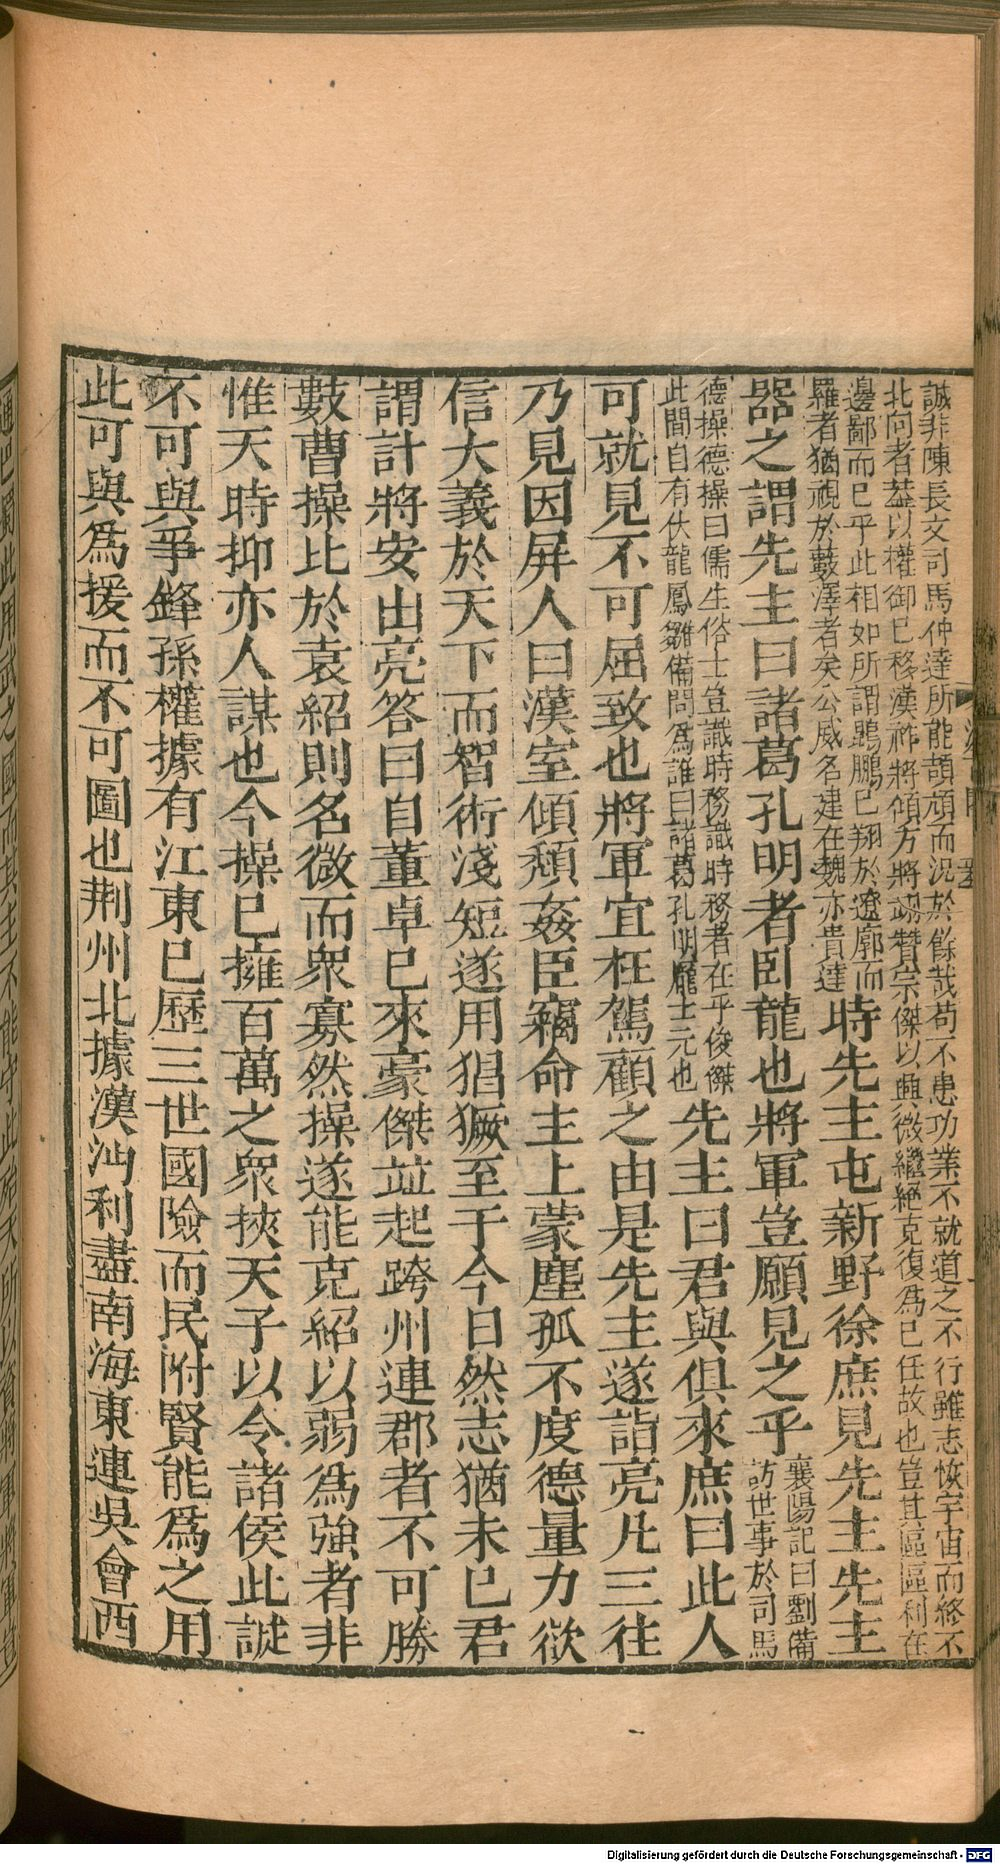 誠非陳長文司馬仲達所能頡頏而況於餘哉苟不患功業不就道之不行雖志恢宇宙而終不
北向者葢以權御已移漢祚將傾方將翊贊宗傑以興微繼絕克復爲己任故也豈其區區利在
邊鄙而已乎此相如所謂鵾鵬已翔於遼廓而
羅者猶視於藪澤者矣公威名建在魏亦貴達
時先主屯新野徐庶見先主先主
器之謂先主曰諸葛孔明者臥龍也將軍豈願見之乎
襄陽記曰劉備
訪世事於司馬
德操德操曰儒生俗士豈識時務識時務者在乎俊傑
此間自有伏龍鳳雛備問爲誰曰諸葛孔明龐士元也
先主曰君與俱來庶曰此人
可就見不可屈致也將軍宜枉駕顧之由是先主遂詣亮凡三往
乃見因屏人曰漢室傾頹姦臣竊命主上蒙塵孤不度德量力欲
信大義於天下而智術淺短遂用猖獗至于今日然志猶未已君
謂計將安出亮答曰自董卓已來豪傑竝起跨州連郡者不可勝
數曹操比於袁紹則名微而衆寡然操遂能克紹以弱爲強者非
惟天時抑亦人謀也今操已擁百萬之衆挾天子以令諸侯此誠
不可與爭鋒孫權據有江東已歷三世國險而民附賢能爲之用
此可與爲援而不可圖也荆州北據漢沔利盡南海東連吳會西
通巴蜀此用武之國而其主不能守此殆天所以資將軍將軍豈
Digitalisierung gefördert durch die Deutsche Forschungsgemeinschaft - DFG